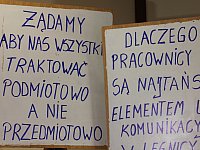 ŻĄDAMY
ABY NAS WSZYSTKI
TRAKTOWAĆ
PODMIOTOWO
A NIE
PRZEDMIOTOWO
DLACZEGO
PRACOWNICY
SĄ NAJTAŃS
ELEMENTEM
KOMUNIKACY
W LEGNICY